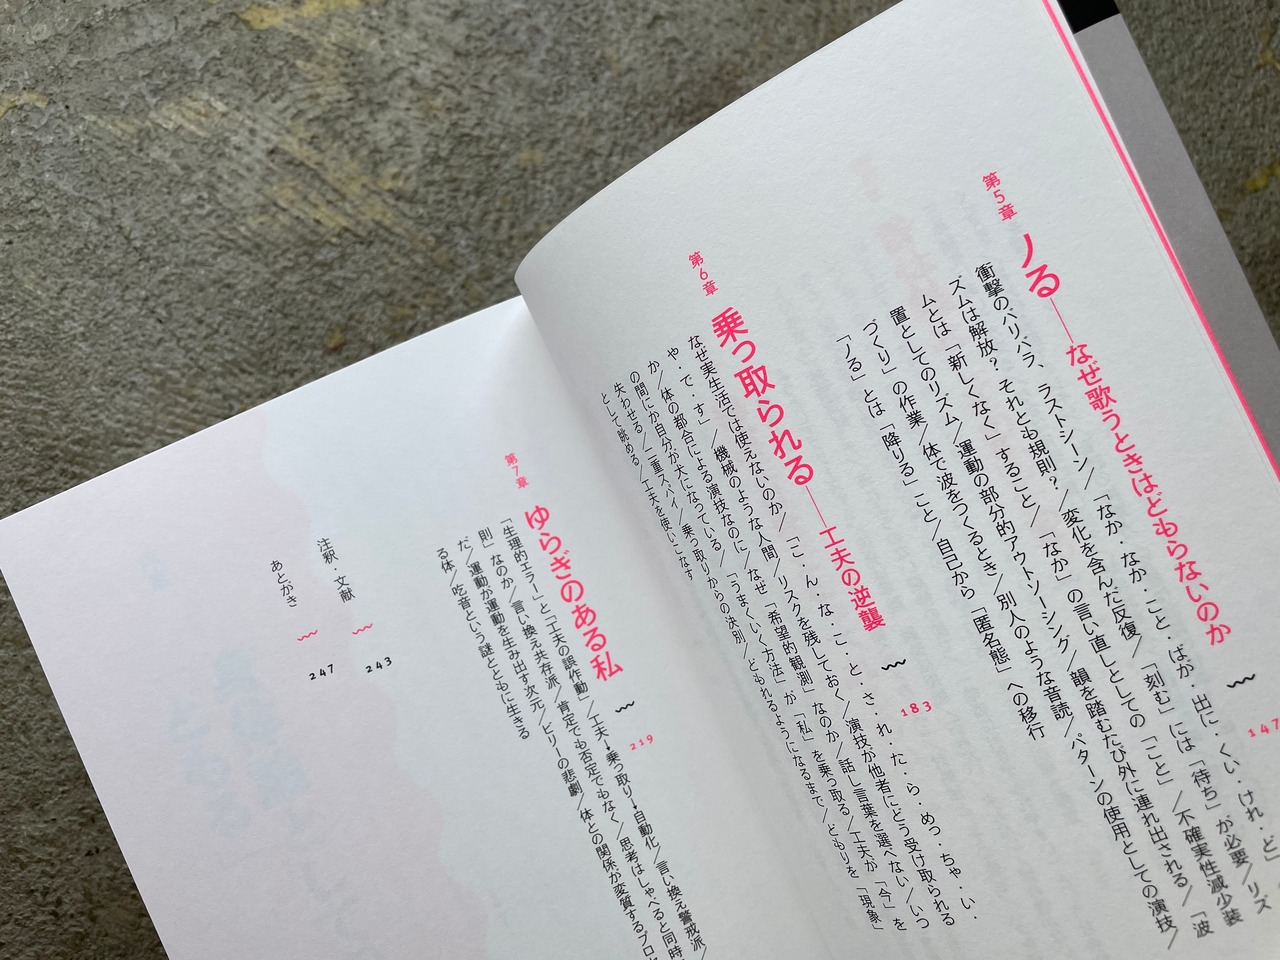 第5章
ノる――なぜ歌うときはどもらないのか
147
衝撃のバリバラ、ラストシーン／「なか・なか・こと・ばが・出に・くい・けれ・ど」
ズムは解放？それとも規則？／変化を含んだ反復／「刻む」には「待ち」が必要／リズ
ムとは「新しくなく」すること／「なか」の言い直しとしての「こと」／不確実性減少装
置としてのリズム／運動の部分的アウトソーシング／韻を踏むたび外に連れ出される／「波
づくり」の作業／体で波をつくるとき／別人のような音読／パターンの使用としての演技／
「ノる」とは「降りる」こと／自己から「匿名態」への移行
第6章
乗っ取られる――工夫の逆襲
183
なぜ実生活では使えないのか／「こ・ん・な・こ・と・さ・れ・た・ら・めっ・ちゃ・い・
や・で・す」／機械のような人間／リスクを残しておく／演技が他者にどう受け取られる
か／体の都合による演技なのに／なぜ「希望的観測」なのか／話し言葉を選べない／いつ
の間にか自分が犬になっている／「うまくいく方法」が「私」を乗っ取る／工夫が「今」を
失わせる／二重スパイ／乗っ取りからの決別／どもれるようになるまで／どもりを「現象」
として眺める／工夫を使いこなす
第7章
ゆらぎのある私
219
「生理的エラー」と「工夫の誤作動」／工夫→乗っ取り→自動化／言い換え警戒派／
則」なのか／言い換え共存派／肯定でも否定でもなく／思考はしゃべると同時
だ／運動が運動を生み出す次元／ビリーの悲劇／体との関係が変質するプロセ
る体／吃音という謎とともに生きる
注釈・文献
243
あとがき
247